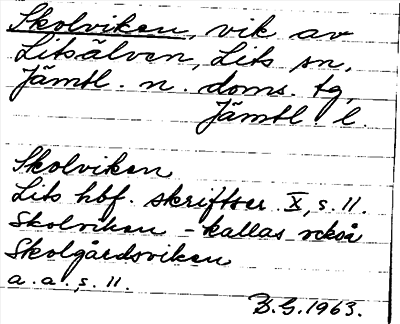 Skolviken, vik av
Litsälven, Lits sn,
Jämtl. n. doms. tg,
Jämtl. l.
Skolviken
Lits hbf. skriftser. X, s. 11.
Skolviken - kallas också
Skolgårdsviken
a. a., s. 11.
B.G. 1963.